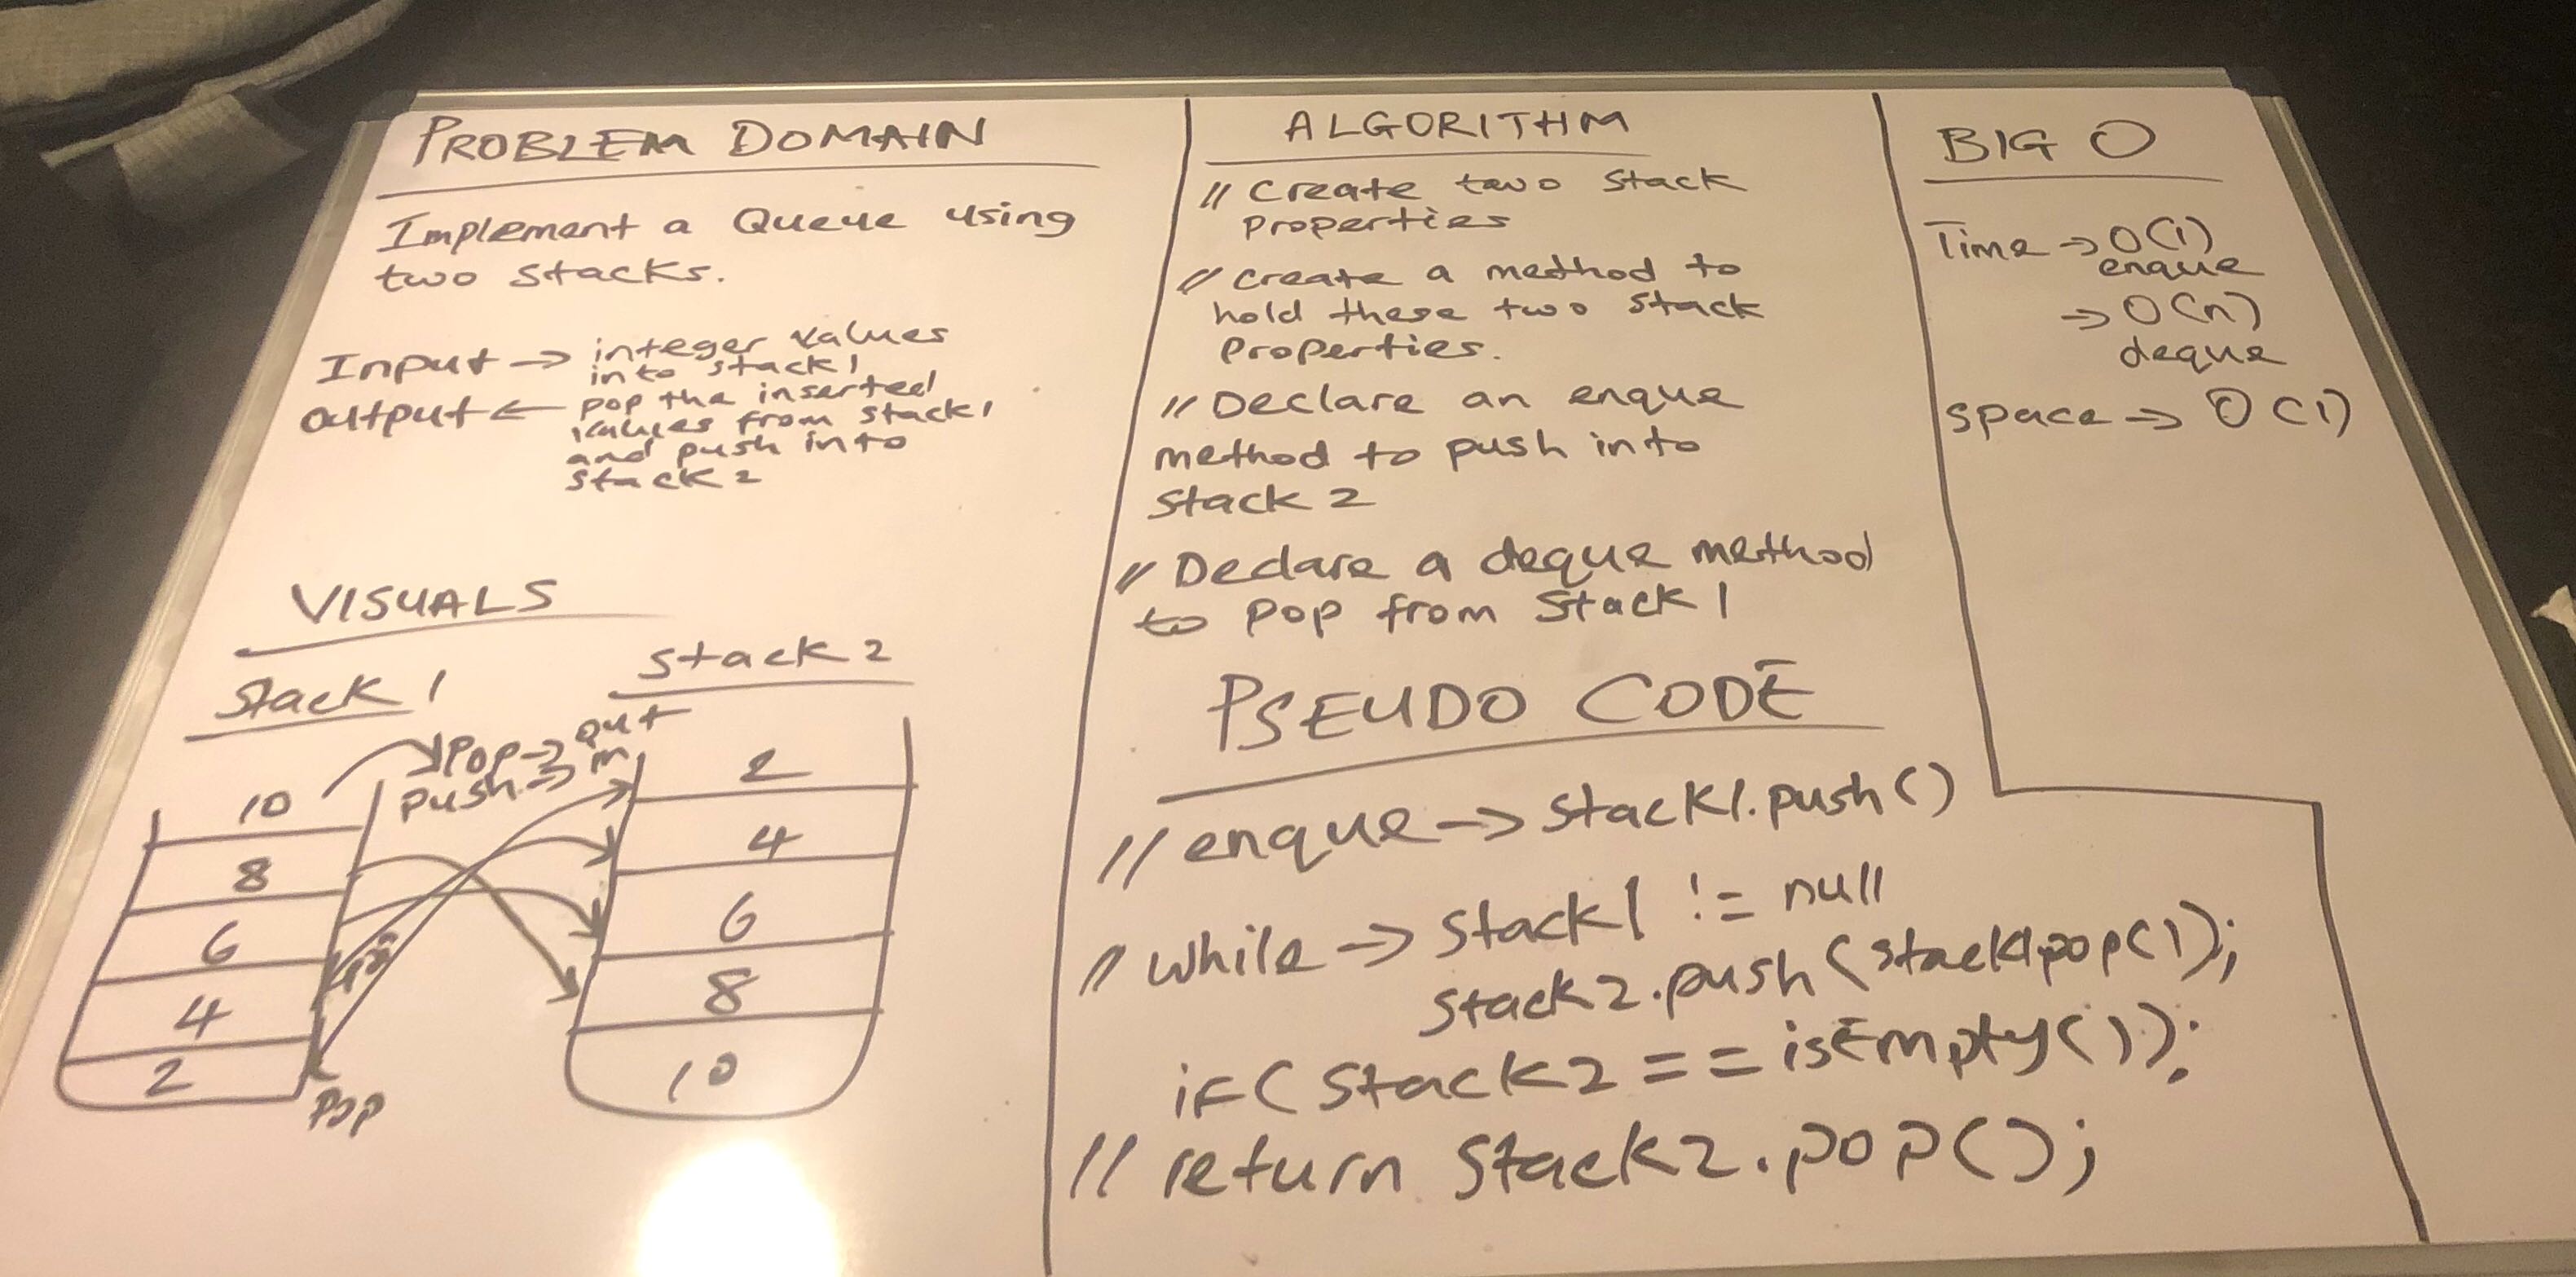 PROBLEM DOMAIN
Implement a Queue using
two stacks.
Input → integer values
into stack1
Output ← pop the inserted
values from stack1
and push into
stack2
VISUALS
Stack 1
Stack 2
Pop → out
push → in
10
8
6
4
2
Pop
2
4
6
8
10
ALGORITHM
// Create two stack
properties
// create a method to
hold these two stack
properties.
// Declare an enque
method to push into
stack 2
// Declare a deque method
to pop from stack 1
PSEUDO CODE
// enque → stack1.push()
// while → stack1 != null
stack2.push(stack1.pop());
if(stack2 == isEmpty());
// return stack2.pop();
BIG O
Time → O(1)
enque
→ O(n)
deque
space → O(1)